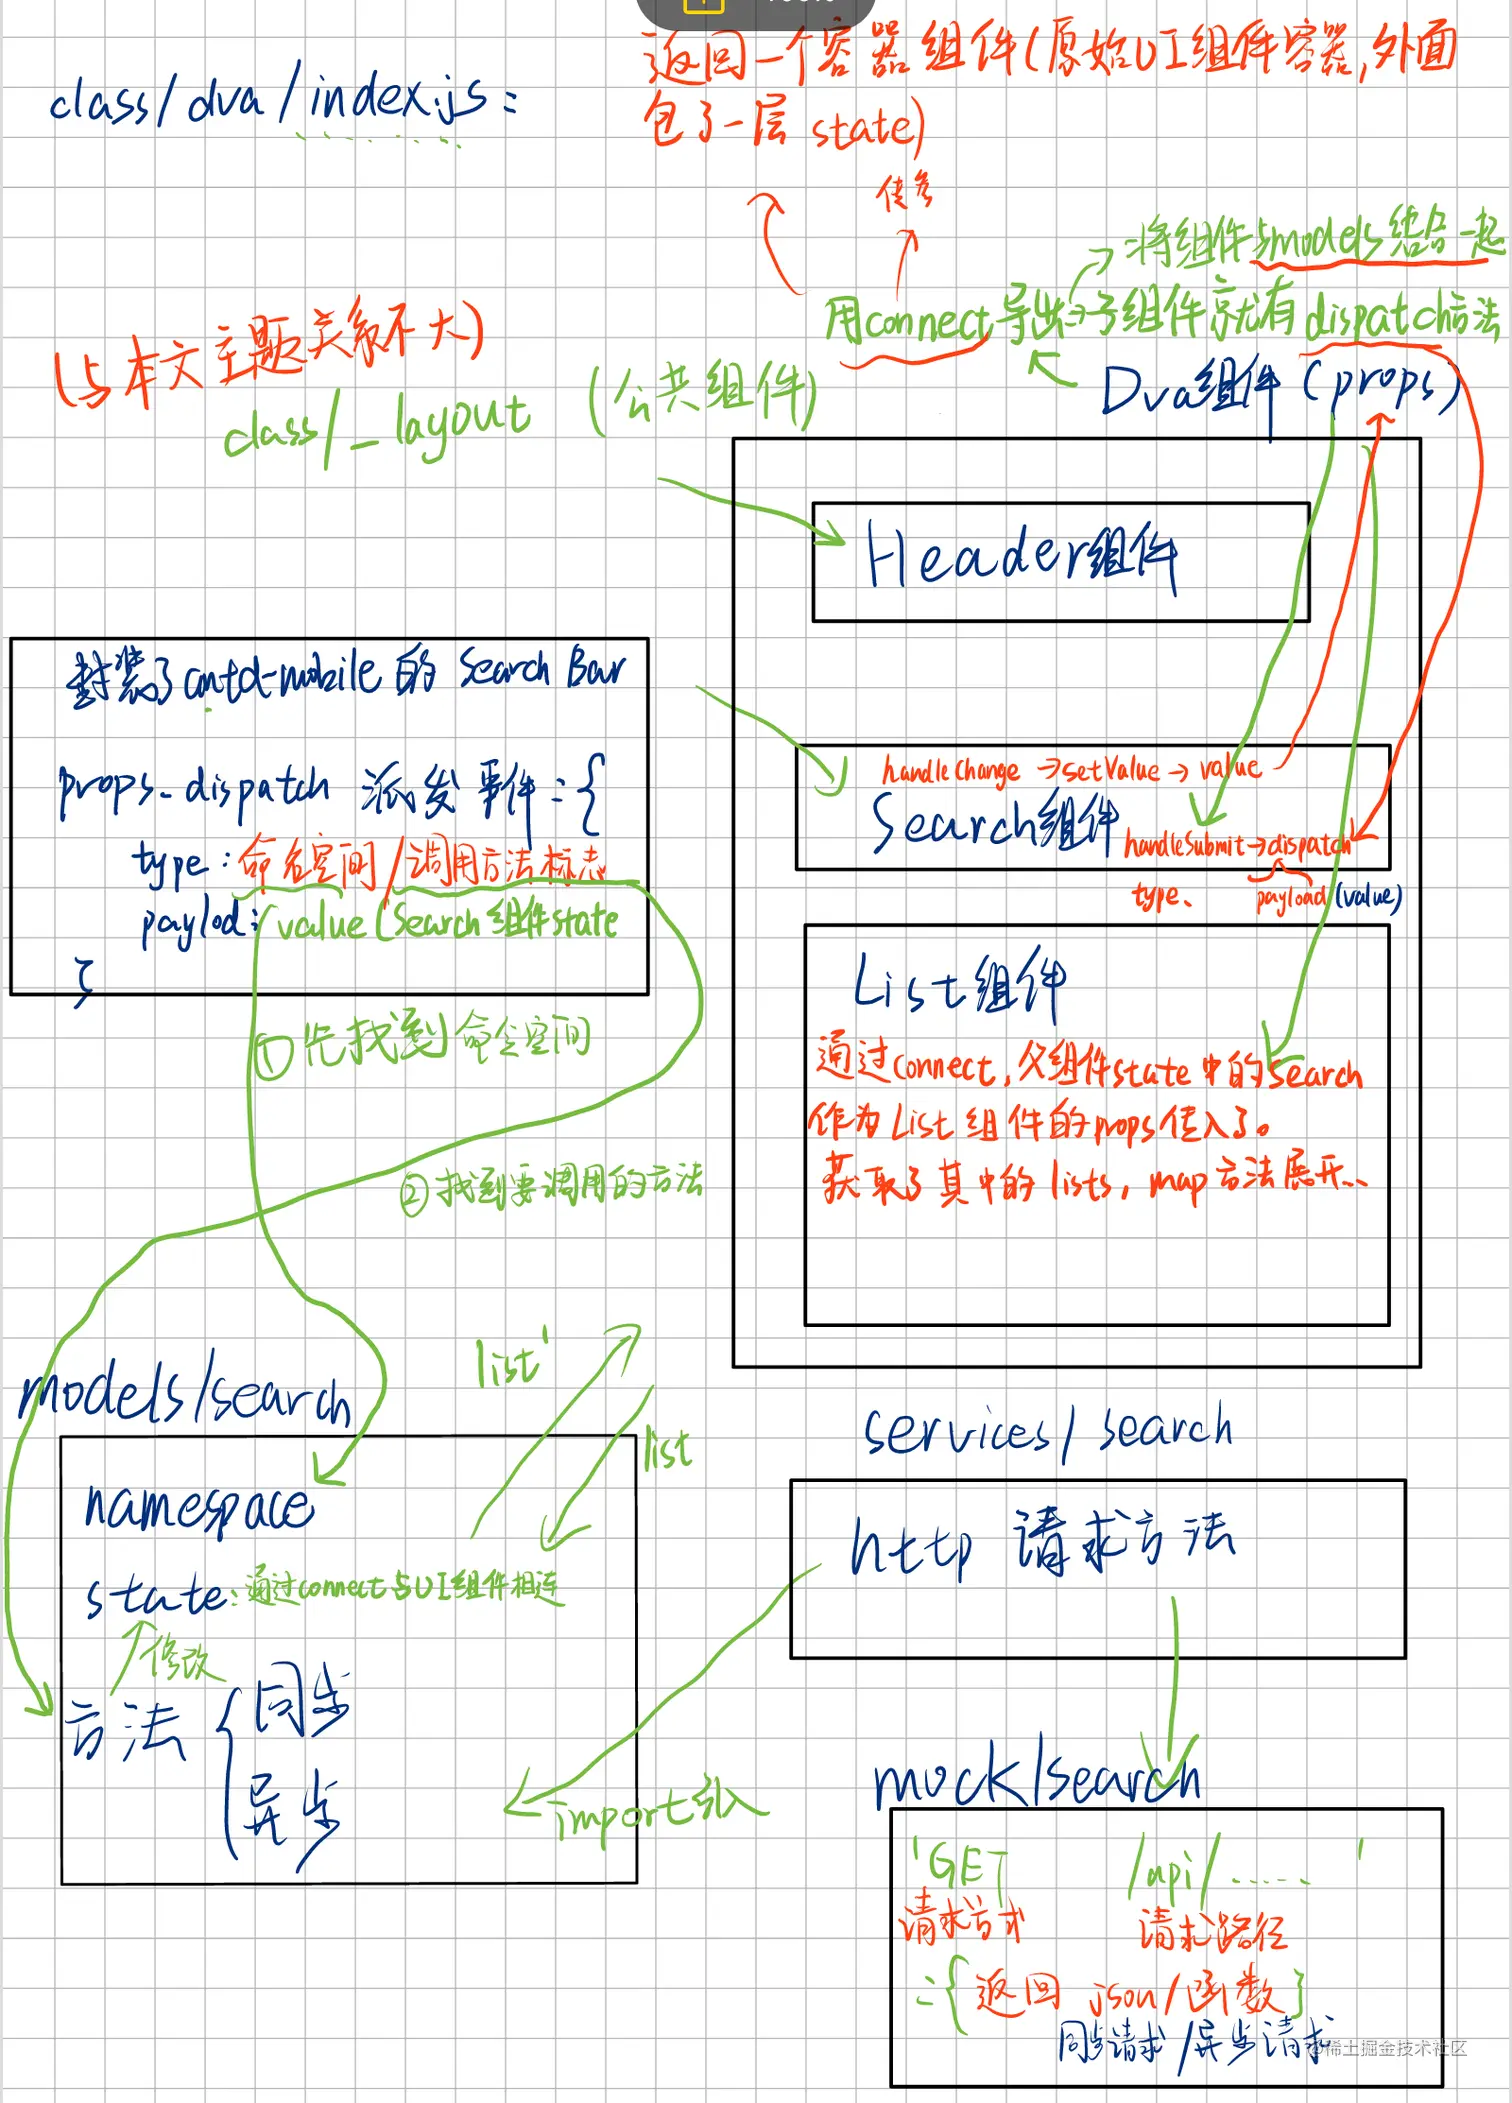 class/dva/index.js:
返回一个容器组件(原始UI组件容器,外面
包了一层 state)
传参
将组件与models结合一起
用connect导出的子组件就有dispatch方法
(与本文主题关系不大)
class/_layout (公共组件)
Dva组件 (props)
Header组件
封装了antd-mobile 的 Search Bar
props.dispatch 派发事件:{
type:命名空间/调用方法标志
paylod: value (Search 组件state
}
handleChange →setValue → value
Search组件
handleSubmit→dispatch
type、 payload (value)
List组件
通过connect,父组件state中的search
作为List 组件的props传入了。
获取了其中的lists, map方法展开...
①先找到命名空间
②找到要调用的方法
list'
list
models/search
namespace
state:通过connect与UI组件相连
修改
方法 { 同步
异步
services/search
http 请求方法
import引入
mock/search
'GET /api/...... '
请求方式 请求路径
:{返回 json/函数}
同步请求/异步请求
@稀土掘金技术社区